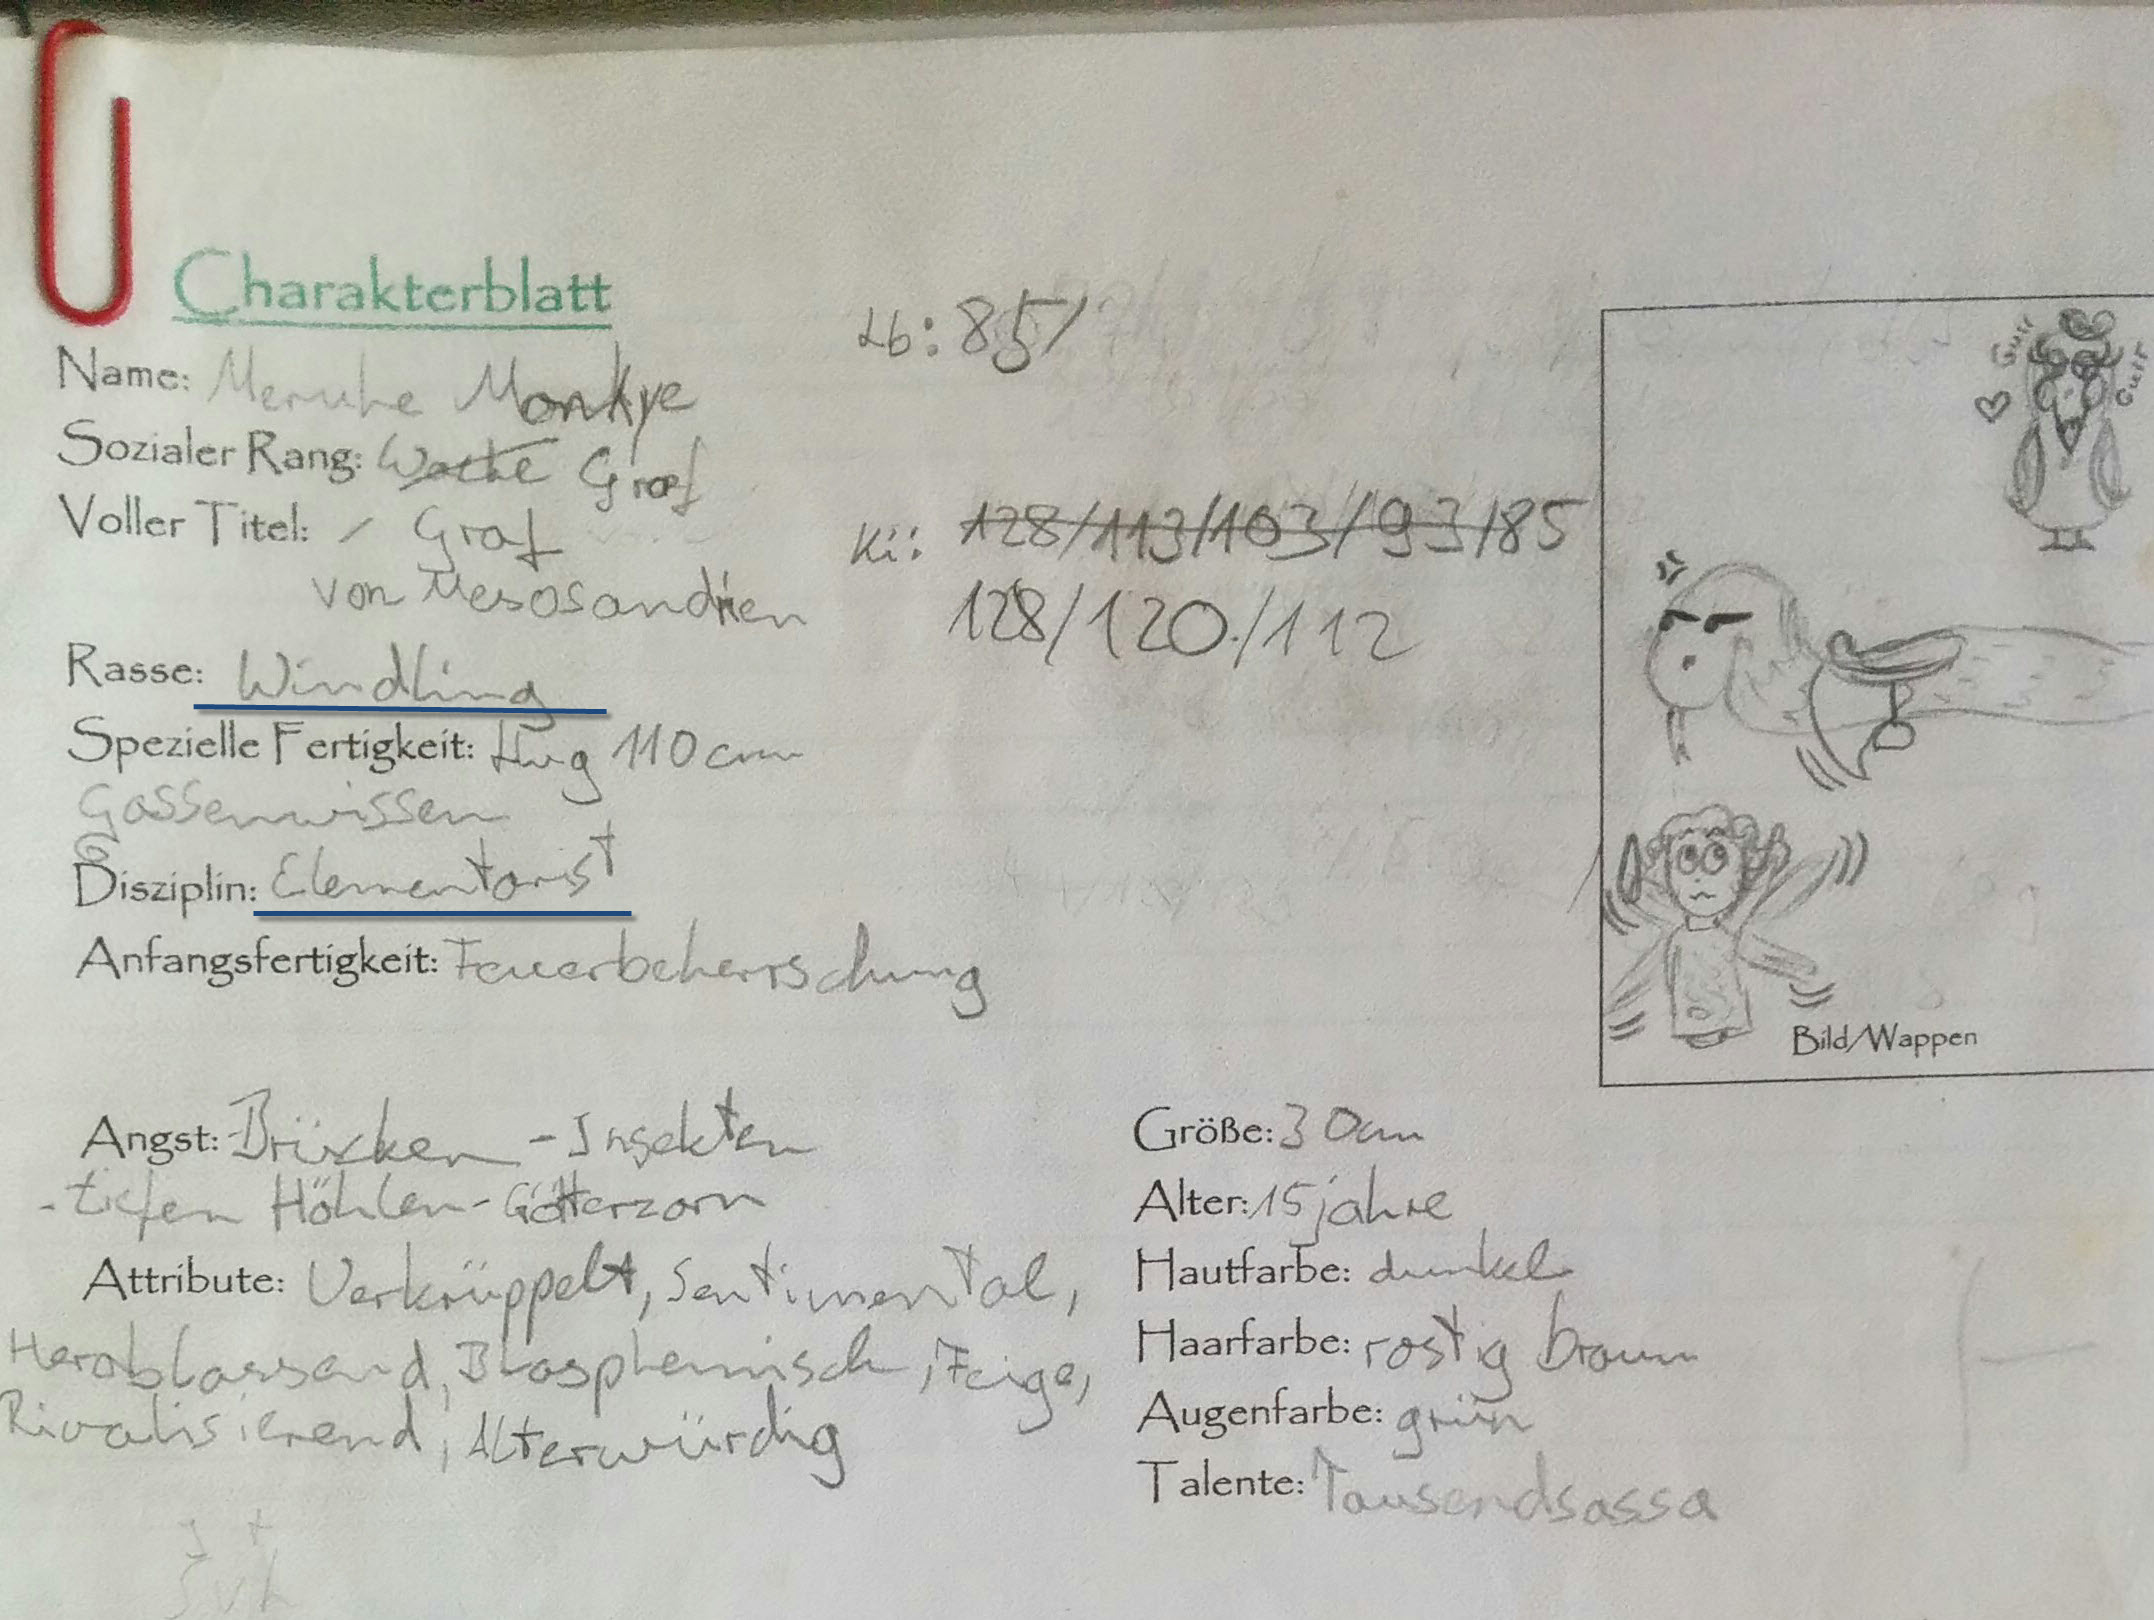 Charakterblatt
Lb: 85/
Name: Meruhe Monkye
Sozialer Rang: Wache Graf
Voller Titel: / Graf
von Mesosandrien
Ki: 128/113/103/93/85
128/120/112
Rasse: Windling
Spezielle Fertigkeit: Flug 110cm
Gassenwissen
Disziplin: Elementarist
Anfangsfertigkeit: Feuerbeherrschung
Gurr
Gurr
Bild/Wappen
Angst: Brücken - Insekten
- tiefen Höhlen - Götterzorn
Attribute: Verkrüppelt, Sentimental,
Herablassend, Blasphemisch, Feige,
Rivalisierend, Alterwürdig
Größe: 30cm
Alter: 15 jahre
Hautfarbe: dunkel
Haarfarbe: rostig braun
Augenfarbe: grün
Talente: Tausendsassa